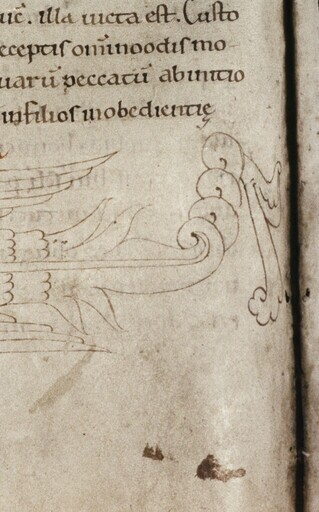 uic̄. illa uicta est. Custo
eceptis om̅imodis mo
uarū peccatū abinitio
infilios inobedientię